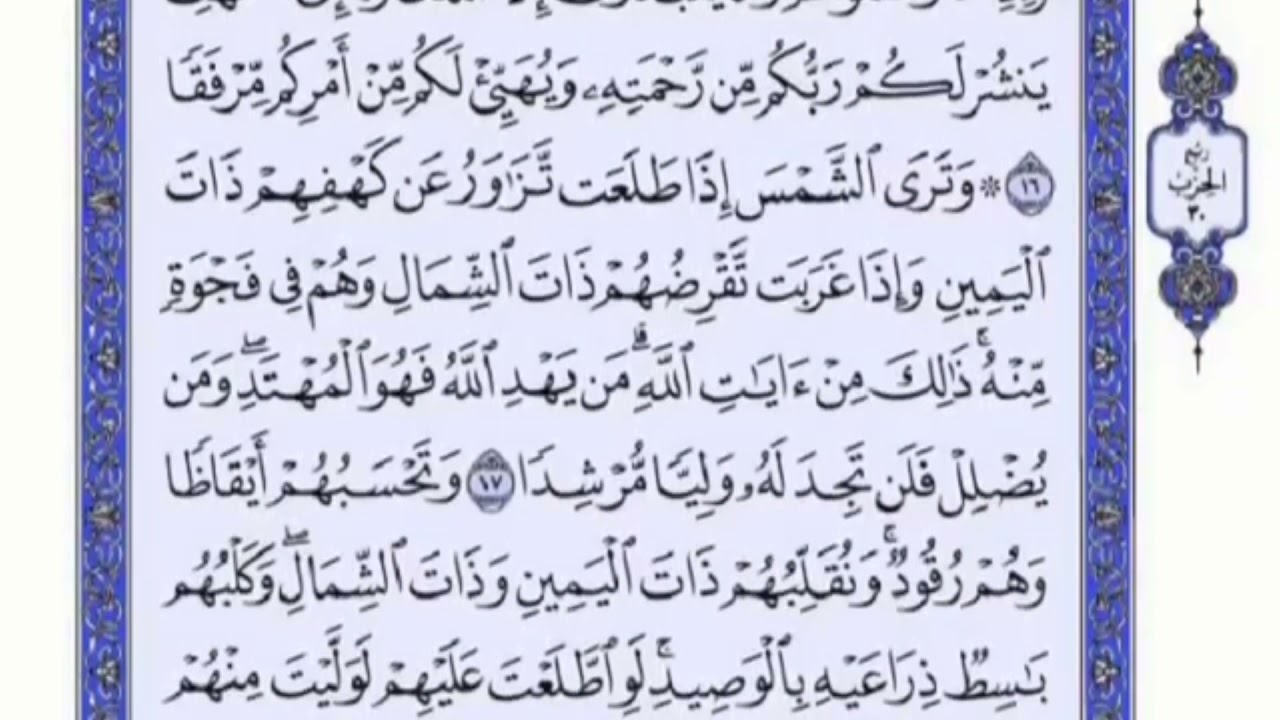 يَنشُرْ لَكُمْ رَبُّكُم مِّن رَّحْمَتِهِۦ وَيُهَيِّئْ لَكُم مِّنْ أَمْرِكُم مِّرْفَقًا
١٦ ۞ وَتَرَى ٱلشَّمْسَ إِذَا طَلَعَت تَّزَٰوَرُ عَن كَهْفِهِمْ ذَاتَ
ٱلْيَمِينِ وَإِذَا غَرَبَت تَّقْرِضُهُمْ ذَاتَ ٱلشِّمَالِ وَهُمْ فِى فَجْوَةٍ
مِّنْهُ ۚ ذَٰلِكَ مِنْ ءَايَٰتِ ٱللَّهِ ۗ مَن يَهْدِ ٱللَّهُ فَهُوَ ٱلْمُهْتَدِ ۖ وَمَن
يُضْلِلْ فَلَن تَجِدَ لَهُۥ وَلِيًّا مُّرْشِدًا ١٧ وَتَحْسَبُهُمْ أَيْقَاظًا
وَهُمْ رُقُودٌ ۚ وَنُقَلِّبُهُمْ ذَاتَ ٱلْيَمِينِ وَذَاتَ ٱلشِّمَالِ ۖ وَكَلْبُهُم
بَٰسِطٌ ذِرَاعَيْهِ بِٱلْوَصِيدِ ۚ لَوِ ٱطَّلَعْتَ عَلَيْهِمْ لَوَلَّيْتَ مِنْهُمْ
ربع
الحزب
٣٠